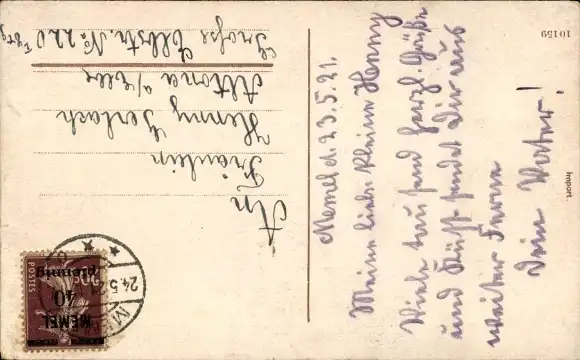 Memel d. 23.5.21.
Meine liebe kleine Henny
Viele tausend herzl. Grüße
und Küsse sendet Dir aus
weiter Ferne
Dein Vater!
An
Fräulein
Henny Gerlach
Altona a/Elbe
Große Elbstr. No 220
10159
Import.
POSTES
20c
MEMEL
40
pfennig
24.5.